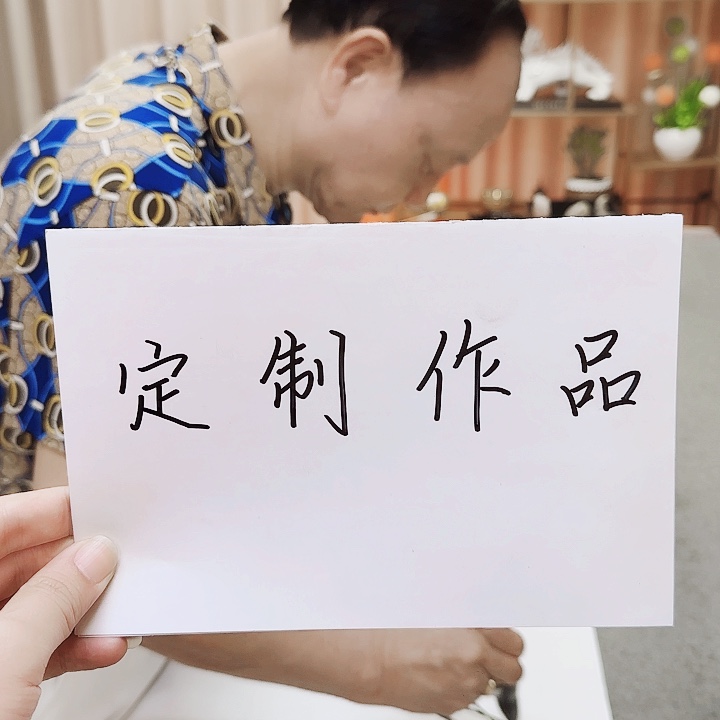 定制作品